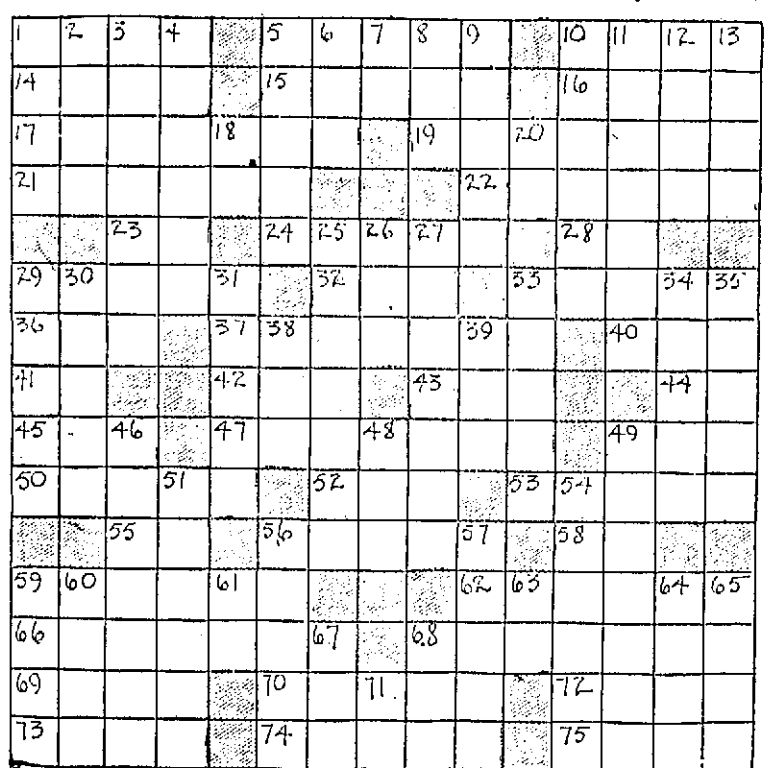 1 2 3 4 5 6 7 8 9 10 11 12 13
14 15 16
17 18 19 20
21 22
23 24 25 26 27 28
29 30 31 32 33 34 35
36 37 38 39 40
41 42 43 44
45 46 47 48 49
50 51 52 53 54
55 56 57 58
59 60 61 62 63 64 65
66 67 68
69 70 71 72
73 74 75